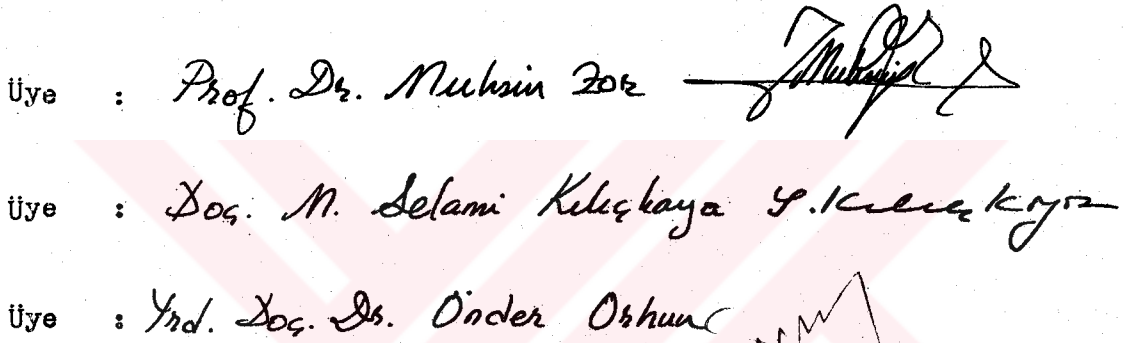 Üye : Prof. Dr. Muhsin Zor
Üye : Doç. M. Selami Kılıçkaya S. Kılıçkaya
Üye : Yrd. Doç. Dr. Önder Orhun